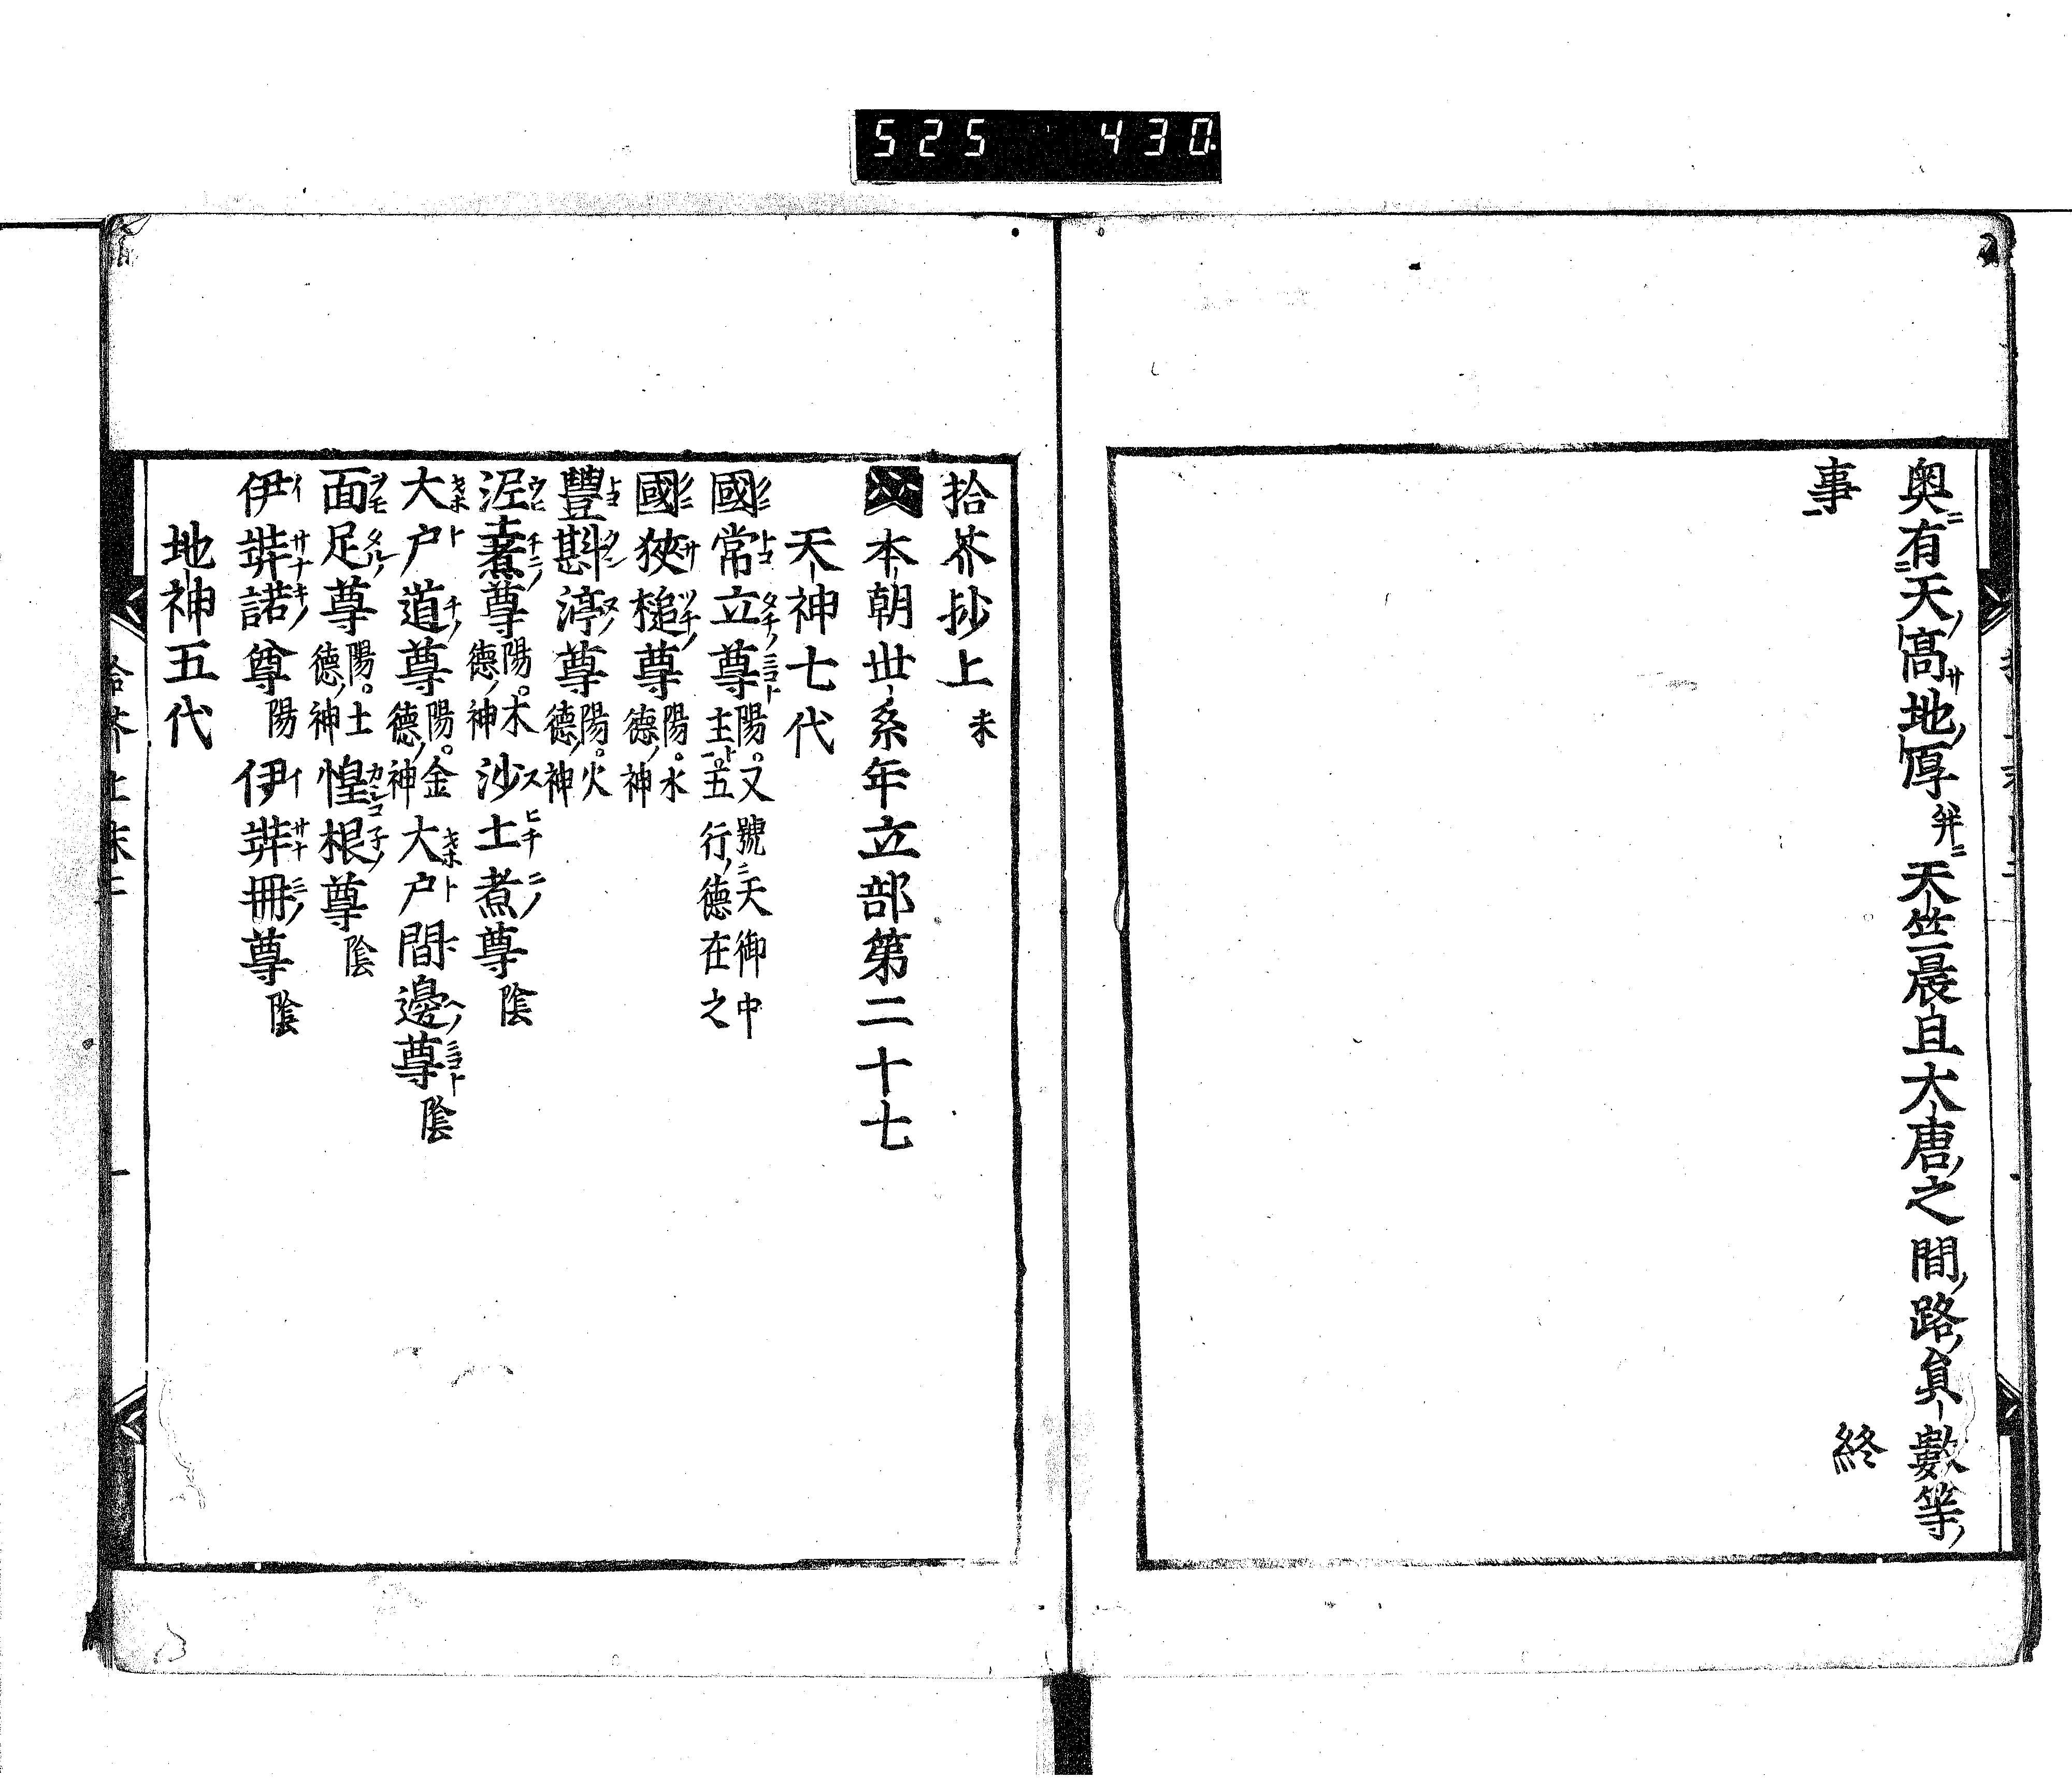 525 430
奥ニ有ニ天ノ高サ地ノ厚幷ニ天竺晨且大唐ノ之間ノ路ノ員數等ノ
事 終
拾芥抄上末
本朝世系年立部第二十七
天神七代
國常立尊 陽。又號ニ天御中主ト五行ノ德在之
國狹槌尊 陽。水德ノ神
豐斟渟尊 陽。火德ノ神
泥土煮尊 陽。木德ノ神 沙土煮尊 陰
大戶道尊 陽。金德ノ神 大戶間邊尊 陰
面足尊 陽。土德ノ神 惶根尊 陰
伊弉諾尊 陽 伊弉冊尊 陰
地神五代